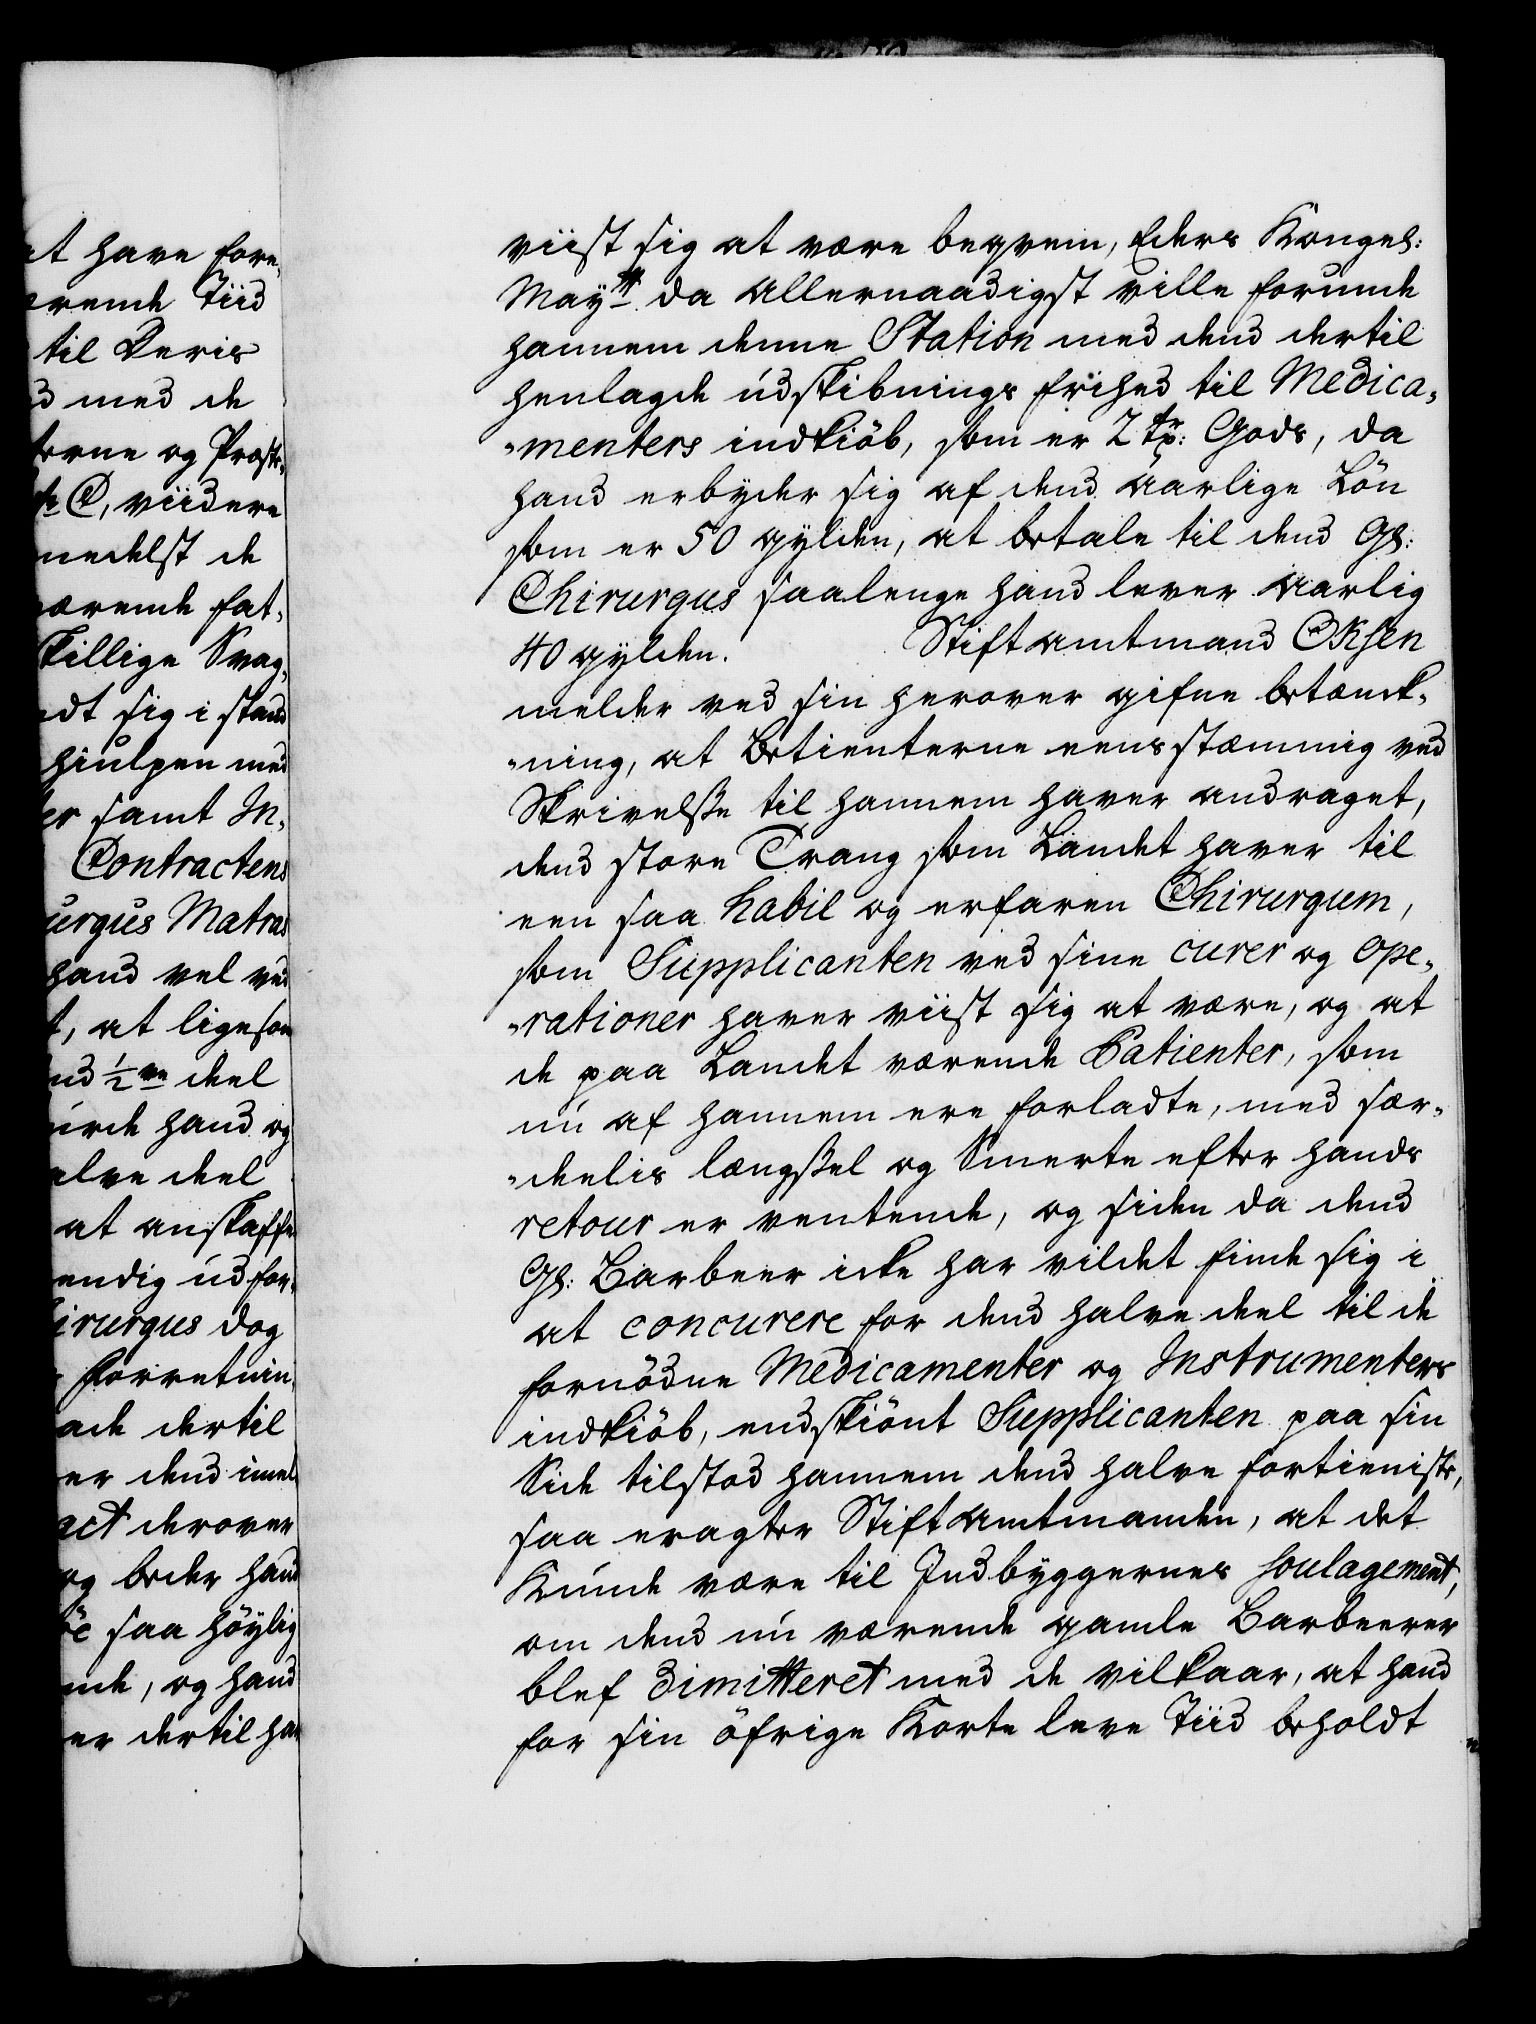 at have fore,
ærende Tiid
til Deris
d med de
terne og Præste,
C, viidere
medelst de
ærende fat,
skillige Svag,
dt sig i stand
hiulpen med
er samt In,
Contractens
urgus Matras
hand vel ved
t, at ligesom
nd ½ve deel
urde hand og
alve deel
at anskaffe
endig udfor,
irurgus dog
forretnin,
ade dertil
er dend imel
act derover
og beder hand
saa höylig
nde, og hand
er dertil har
viist sig at være beqvem, Eders Kongel:
Mayst da allernaadigst ville forunde
hannem denne Station med dend dertil
henlagde udskibnings frihed til Medica,
„menters indkiöb, som er 2 tr: Gods, da
hand erbyder sig af dend Aarlige Lön
som er 50 gylden, at betale til dend Gl:
Chirurgus saalenge hand lever aarlig
40 gylden. Stiftamtmand Oksen
melder ved sin herover gifne betænck,
„ning, at Betienterne eensstæmmig ved
Skrivelsse til hannem haver andraget,
dend store Trang som Landet haver til
een saa habil og erfaren Chirurgum,
som Supplicanten ved sine curer og ope,
„rationer haver viist sig at være, og at
de paa Landet værende Patienter, som
nu af hannem ere forladte, med sær,
„deelis længssel og Smerte efter hands
retour er ventende, og siden da dend
Gl: Barbeer icke har vildet finde sig i
at concurere for dend halve deel til de
fornödne Medicamenter og Instrumenters
indkiöb, endskiönt Supplicanten paa sin
Side tilstod hannem dend halve fortieniste,
saa eragter Stiftamtmanden, at det
Kunde være til Indbyggernes soulagement,
om dend nu værende gamle Barbeerer
blef dimitteret med de vilkaar, at hand
for sin öfrige Korte leve Tiid beholdt